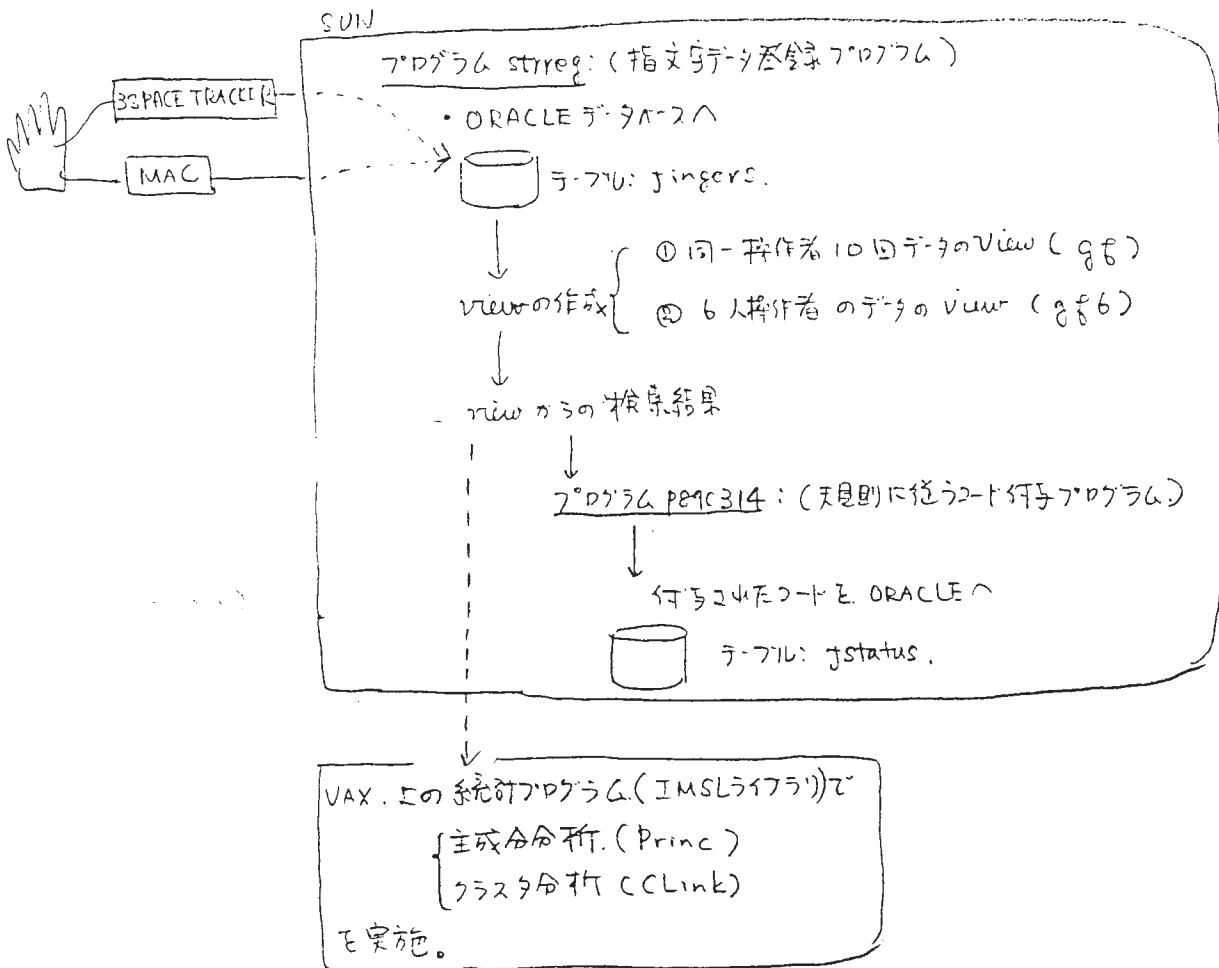 SUN
プログラム strreg:(指文字データ登録プログラム)
3SPACE TRACKER
・ORACLEデータベースへ
MAC
テーブル: jingers.
①同一操作者10回データのView(gf)
viewの作成
②6人操作者のデータのview(gf6)
viewからの検索結果
プログラム :(規則に従うコード付与プログラム)
付与されたコードを ORACLEへ
テーブル: jstatus.
VAX.上の統計プログラム.(IMSLライブラリ)で
主成分分析.(Princ)
クラスタ分析(CLink)
を実施。